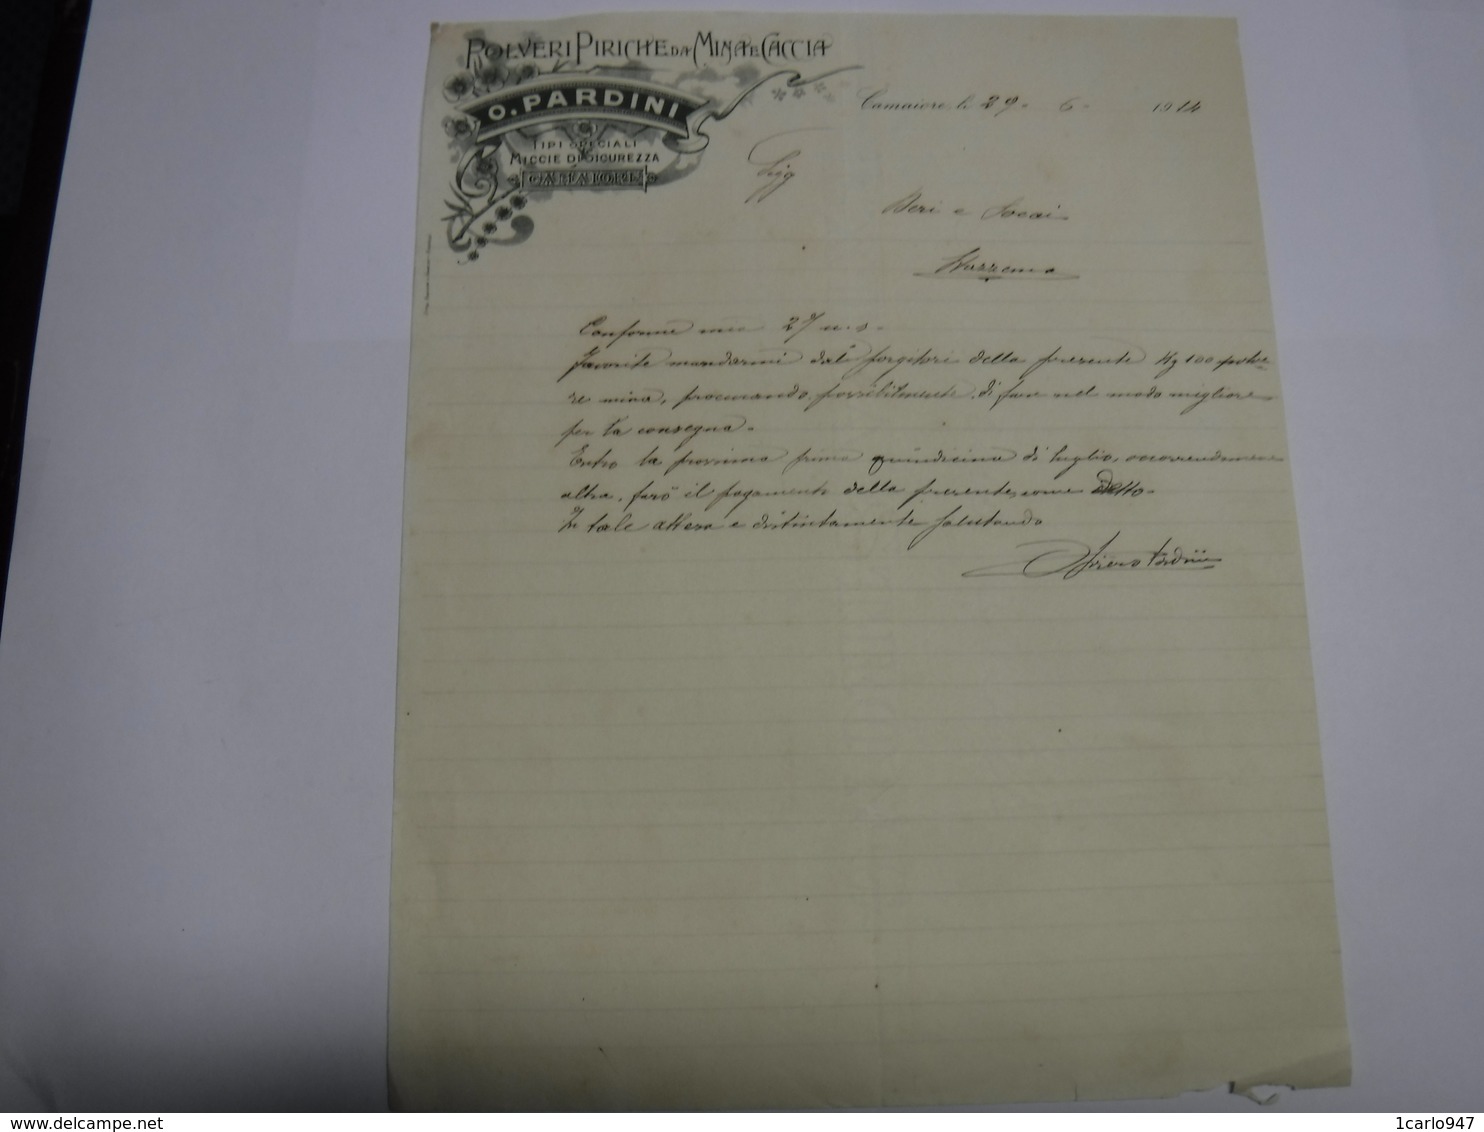 POLVERI PIRICHE DA MINA E CACCIA
O. PARDINI
TIPI SPECIALI
MICCIE DI SICUREZZA
CAMAIORE
Camaiore, li 29 - 6 - 1914
Sigg
Neri e Socai
Conforme mia 27 u.s.
Favorite mandarmi dal della presente Kg 100 polve
re mina, procurando possibilmente di fare nel modo migliore
per la consegna.
Entro la prossima prima quindicina di luglio, occorrendomene
altra, farò il pagamento della presente, come detto.
In tale attesa e distintamente salutando
Pardini
1carlo947
delcampe.net